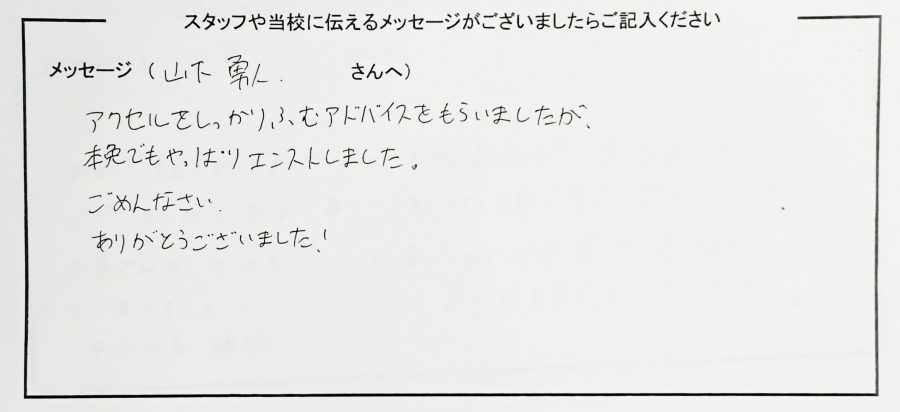 スタッフや当校に伝えるメッセージがございましたらご記入ください
メッセージ（山下 勇人. さんへ）
アクセルをしっかりふむアドバイスをもらいましたが、
本免でもやっぱりエンストしました。
ごめんなさい.
ありがとうございました!